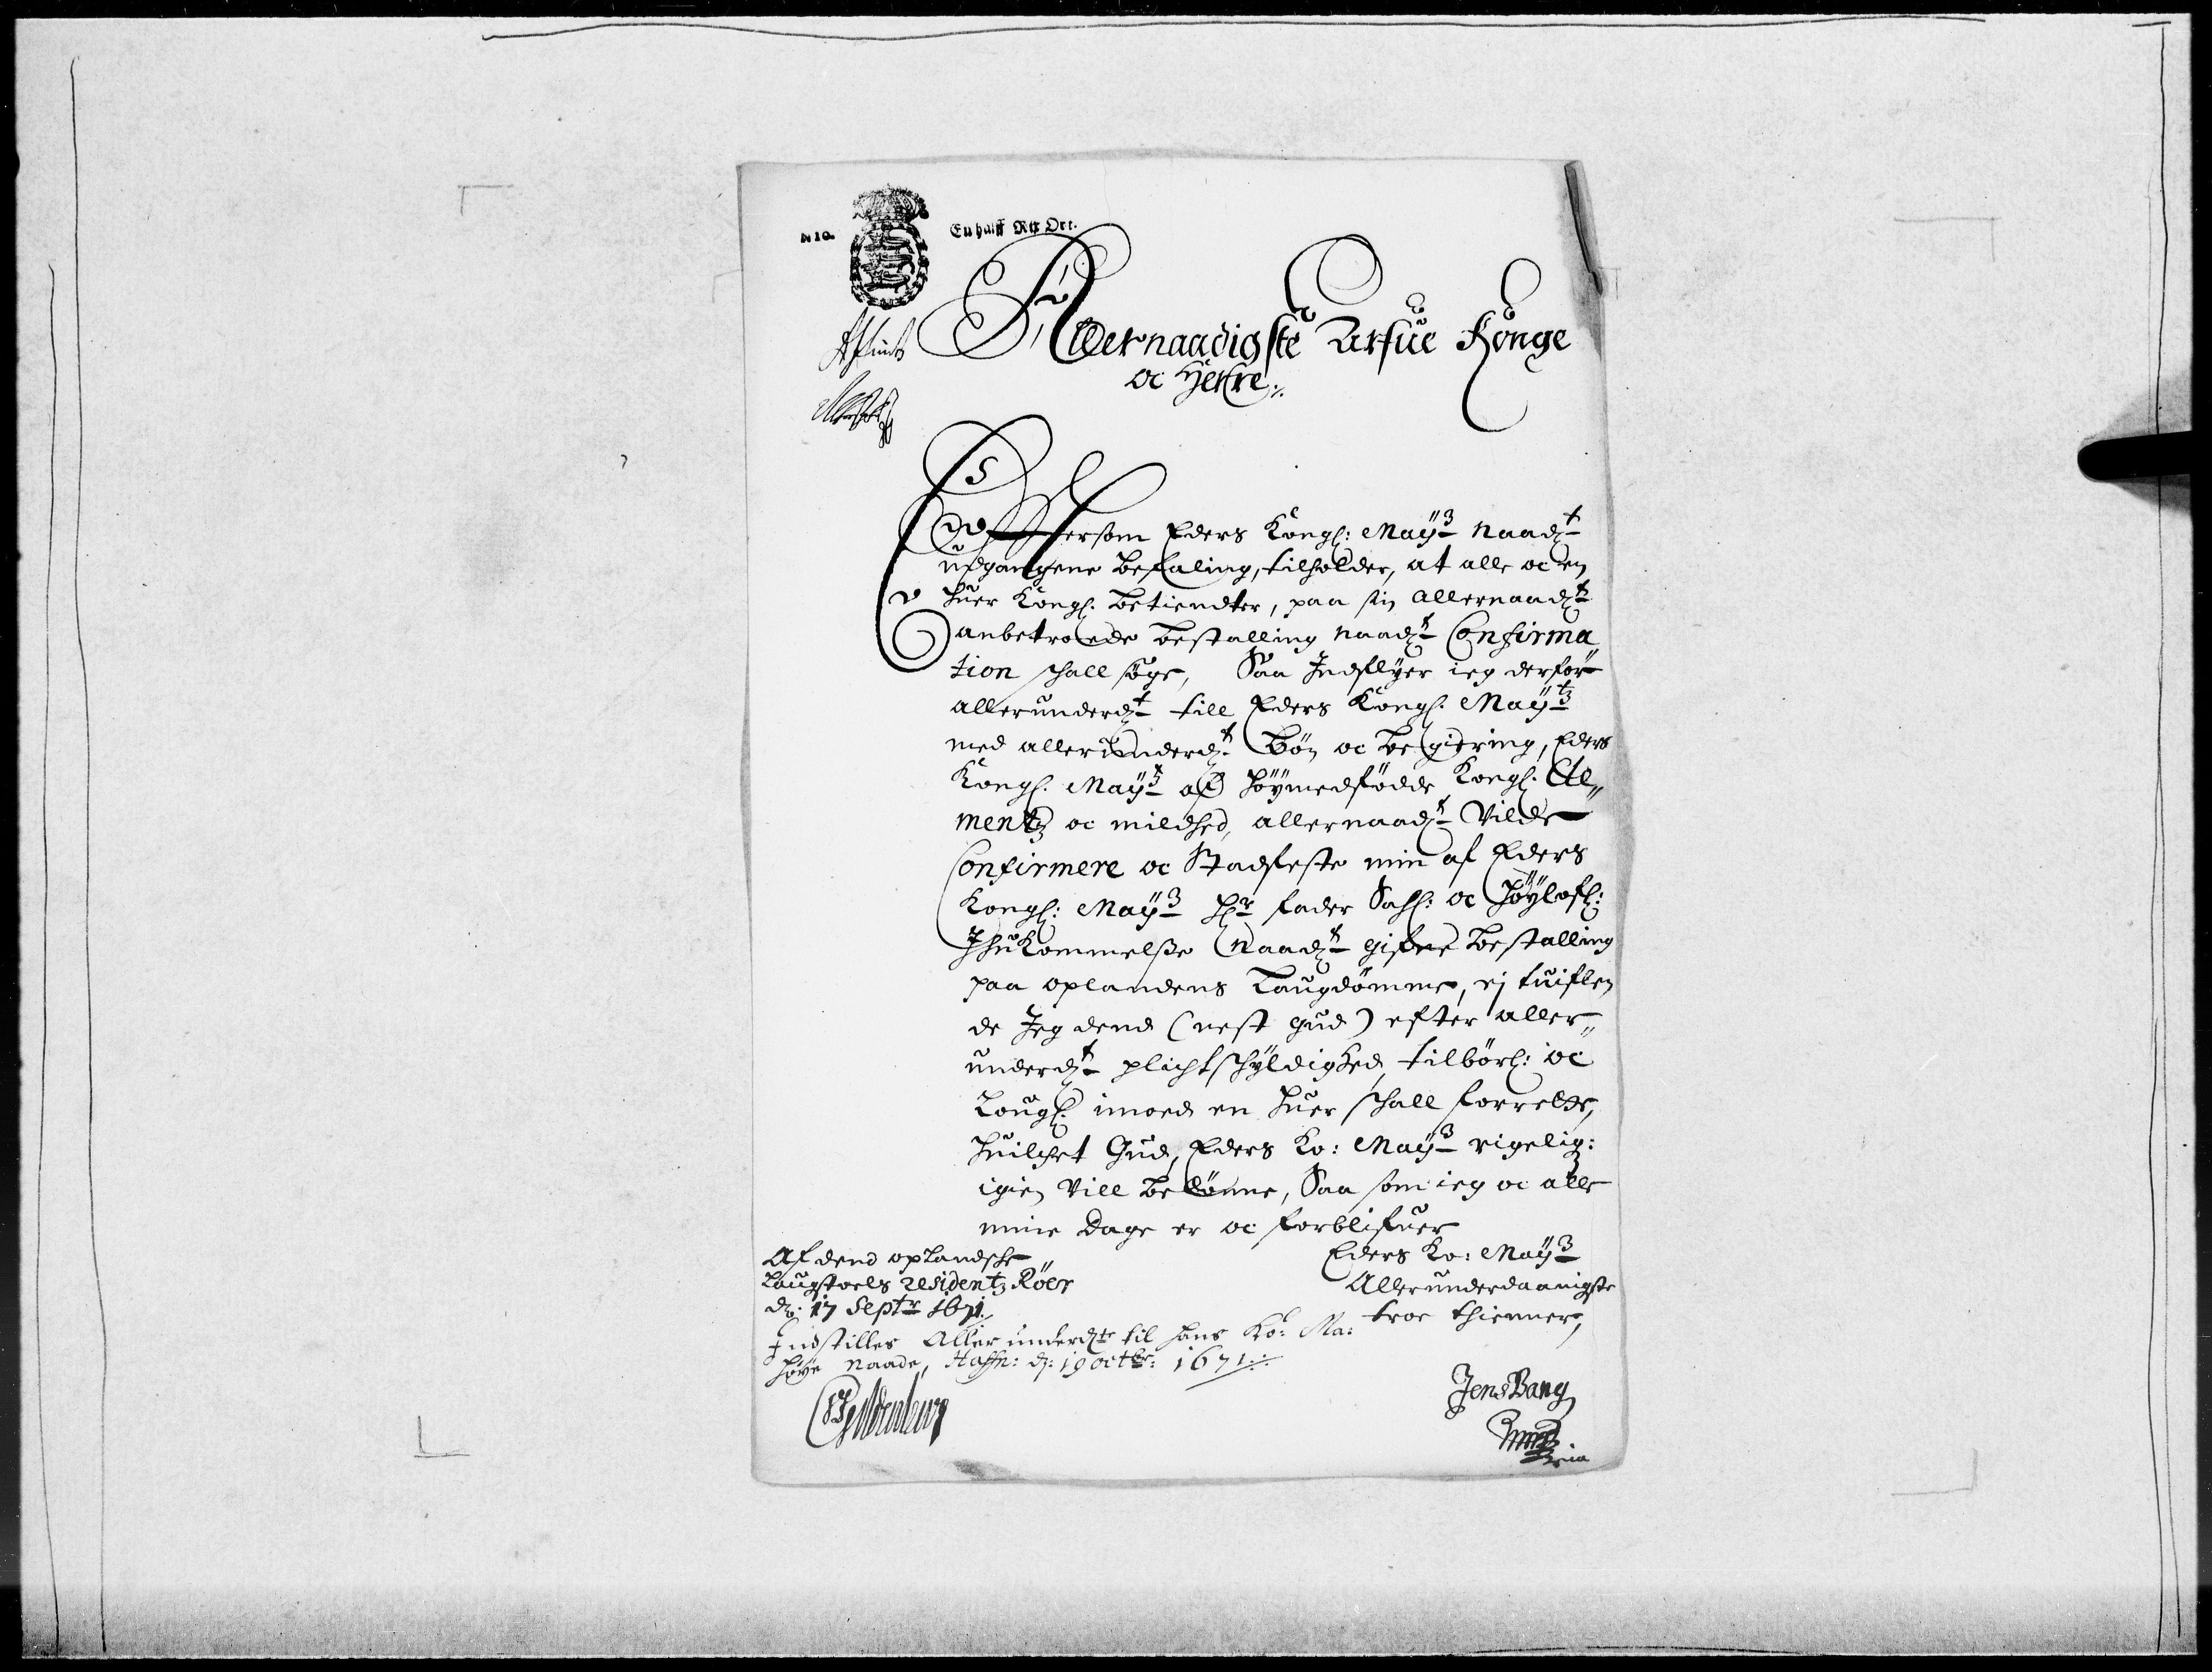 N 10. En halff Rix Ort.
Allernaadigste Arfue Konge
oc Herre:
Eftersom Eders Kongl: May:tz naadt
udgangene befaling, tilholder, at alle oc en
huer Kongl. betiendter, paa sin allernaadt
anbetroede bestalling naadt Confirma
tion schall søge, Saa Indflyer ieg derfor
allerunderdt till Eders Kongl. May:tz
med allerunderdt bøn oc begiering, Eders
Kongl. May:tz af høymedfødde Kongl. Cle„
mentz oc mildhed, allernaadt Vilde
Confirmere oc Stadfeste min af Eders
Kongl: May:tz Hr fader Sahl: oc Høylofl:
Ihukommelsse naadt gifne bestalling
paa oplandens Laugdømme, ej tuiflen
de Jeg dend (nest gud) efter aller„
underdt plichtschyldighed tilbørl: oc
Lougl. imoed en huer schall forrette,
huilchet Gud, Eders Ko: May:tz rigelig:
igien Vill belønne, Saa som ieg oc alle
mine Dage er oc forblifuer
Eders Ko: May:tz
Allerunderdaanigste
troe thienner,
Jens Bang
Af dend oplandsche
Laugstoels residentz Röer
d: 17 Septr 1671.
Indstilles Allerunderdt til hans Ko: Ma:
høye naade, Haffn: d: 19 octbr: 1671.
Gyldenløwe